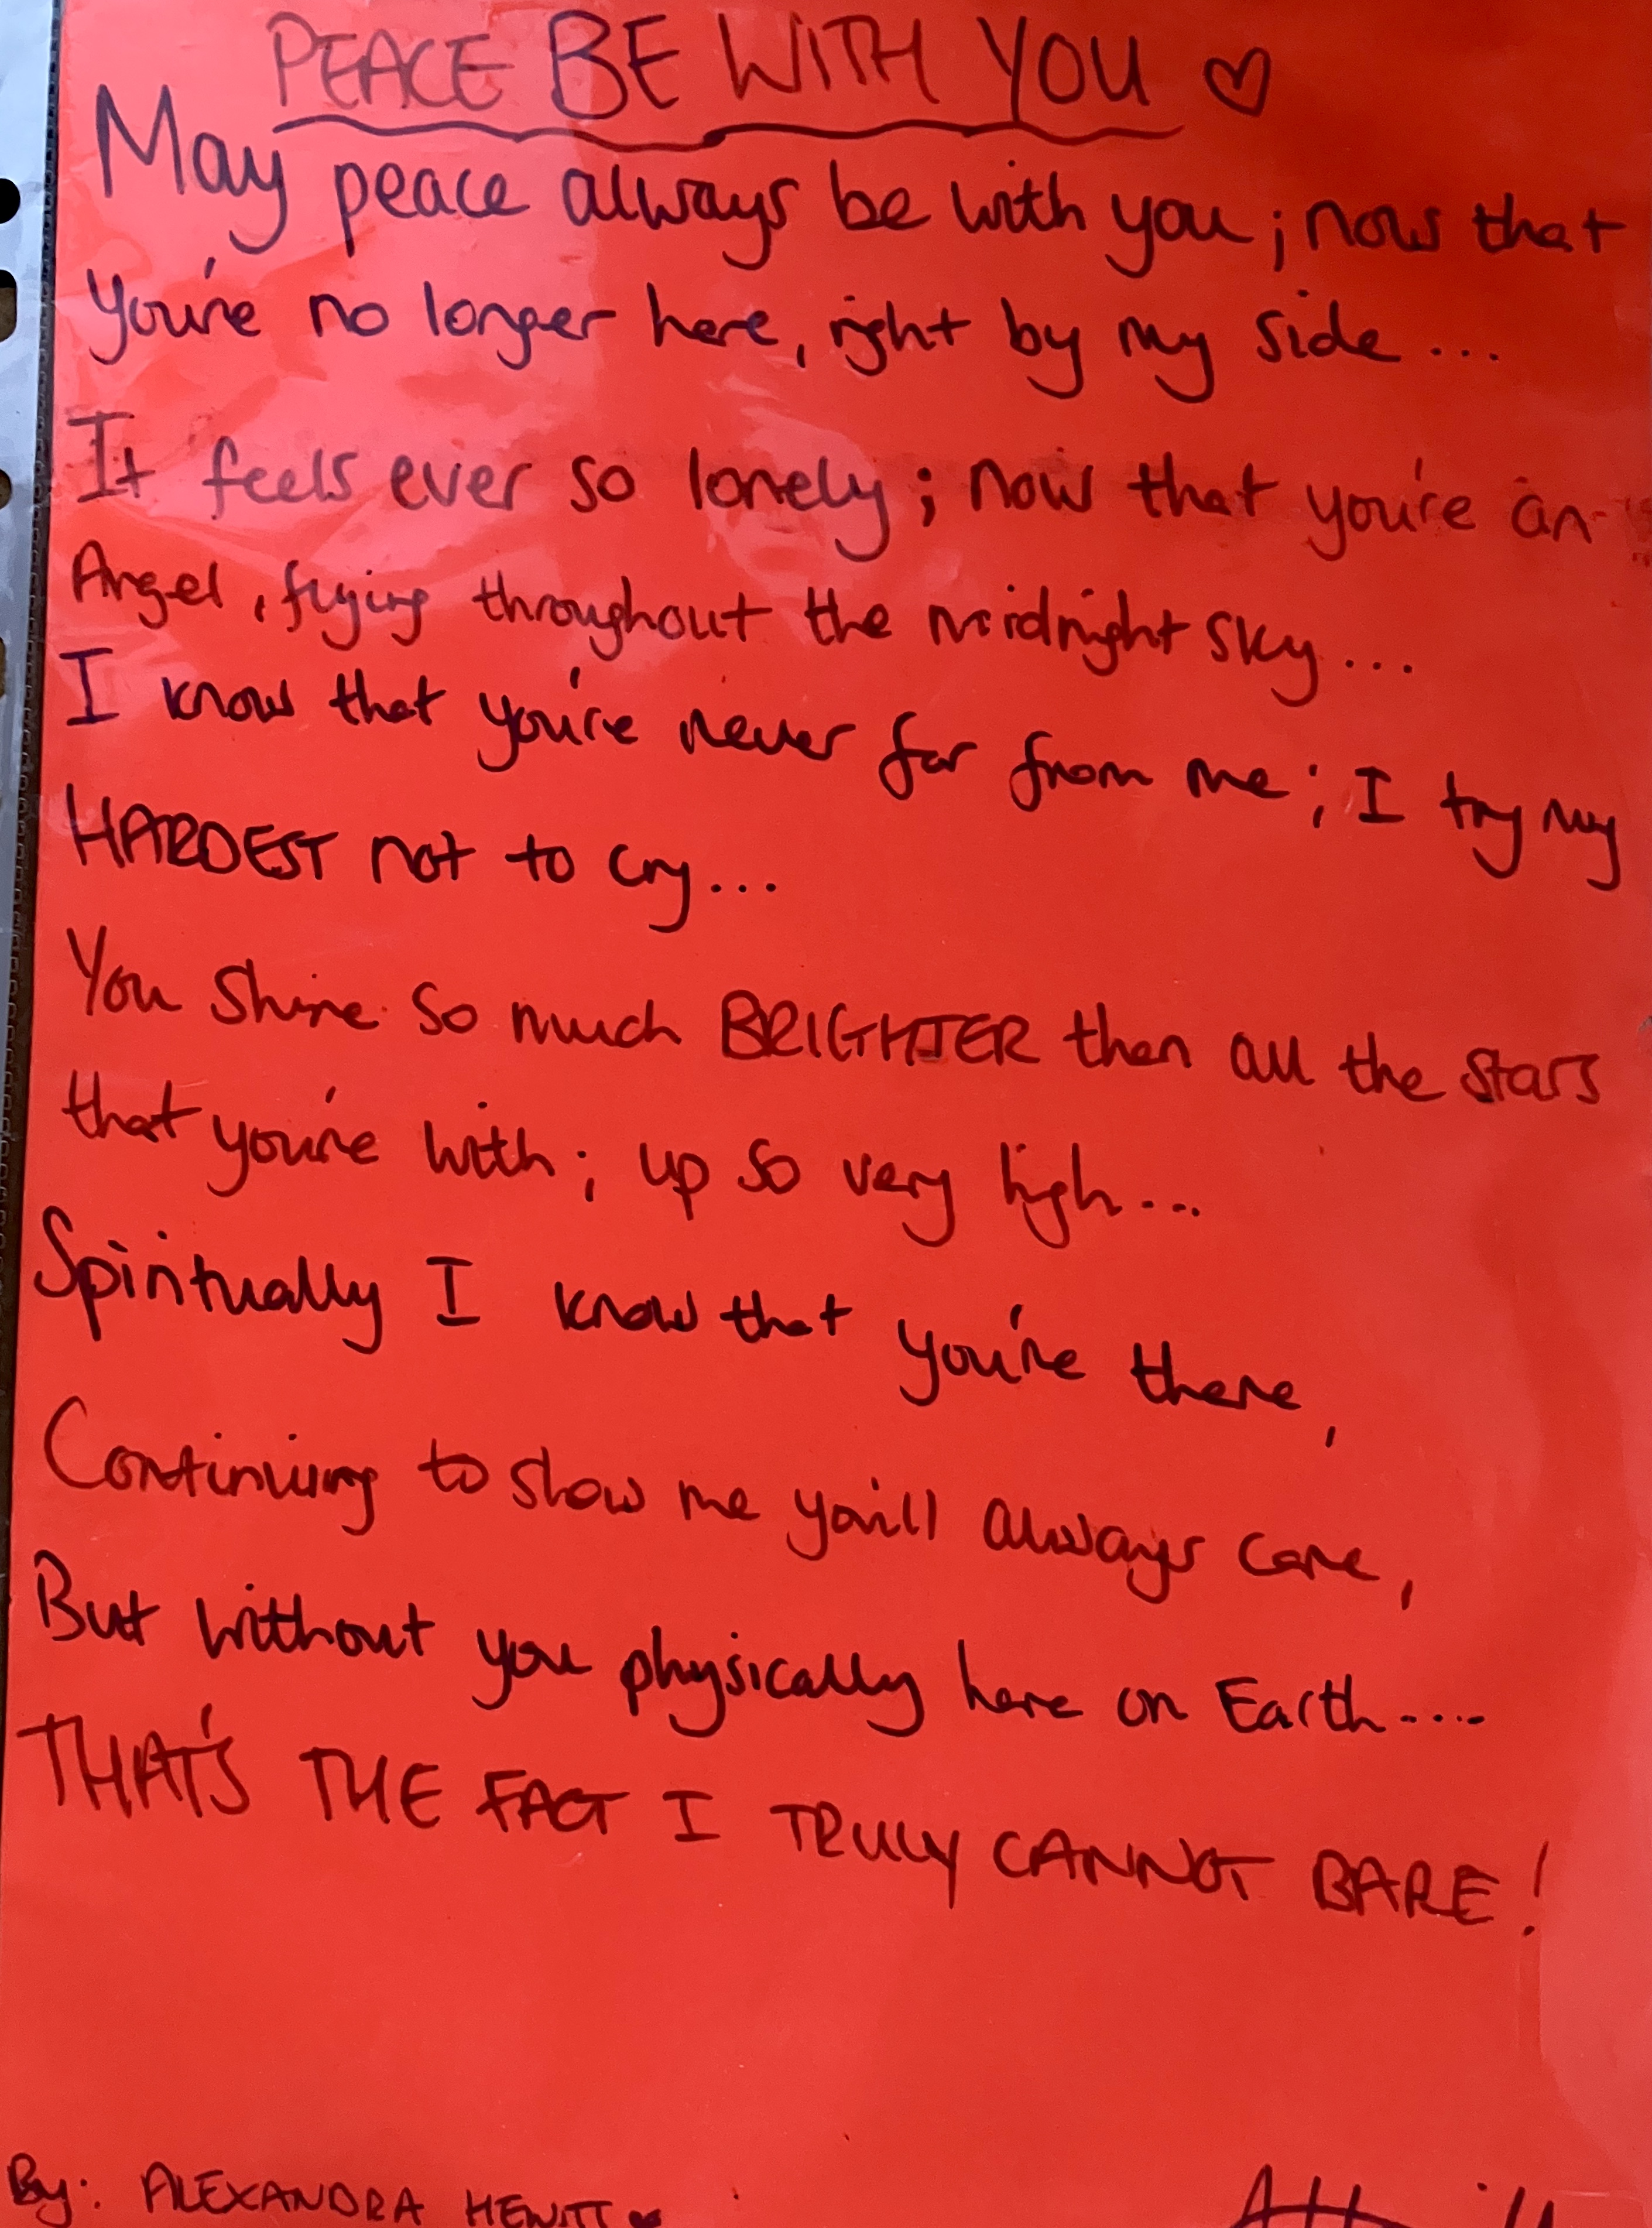 PEACE BE WITH YOU ♡
May peace always be with you; now that
you're no longer here, right by my side...
It feels ever so lonely; now that you're an
Angel, flying throughout the midnight sky...
I know that you're never far from me; I try my
HARDEST not to cry...
You shine so much BRIGHTER than all the stars
that you're with; up so very high...
Spiritually I know that you're there,
Continuing to show me you'll always care,
But without you physically here on Earth....
THAT'S THE FACT I TRULY CANNOT BARE!
By: ALEXANDRA HEWITT ♥